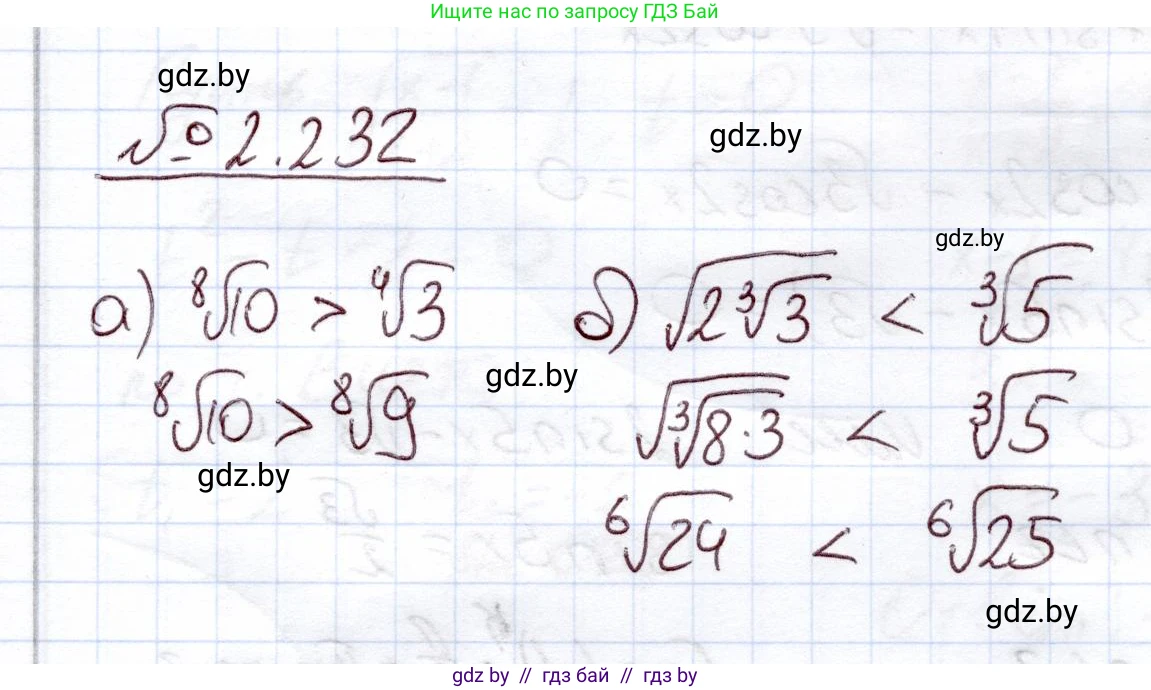 Ищите нас по запросу ГДЗ Бай
gdz.by
№ 2.232
gdz.by
gdz.by
а) ⁸√10 > ⁴√3
⁸√10 > ⁸√9
gdz.by
б) √(2∛3) < ∛5
√(∛(8·3)) < ∛5
⁶√24 < ⁶√25
gdz.by
gdz.by
gdz by // гдз бай // гдз by